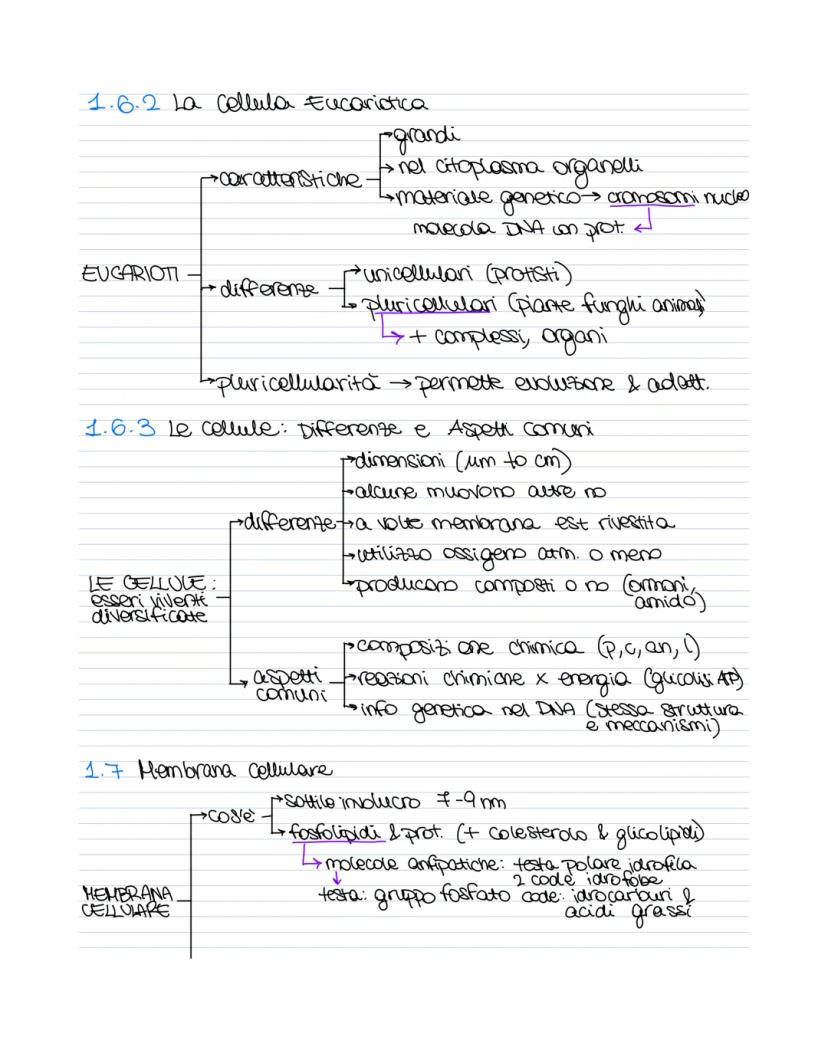 1.6.2 La cellula Eucariotica
→grandi
→nel citoplasma organelli
→caratteristiche
→materiale genetico→ cromosomi nucleo
molecola DNA con prot.
EUCARIOTI
→unicellulari (protisti)
→differenze
→pluricellulari (piante funghi animali)
→+ complessi, organi
→pluricellularità → permette evoluzione & adatt.
1.6.3 Le cellule: Differenze e Aspetti comuni
→dimensioni (μm to cm)
→alcune muovono altre no
→differenze→a volte membrana est rivestita
→utilizzo ossigeno atm. o meno
LE CELLULE: →producono composti o no (ormoni,
esseri viventi amido)
diversificate
→composizione chimica (p,c,an,l)
→aspetti →reazioni chimiche x energia (glicolisi ATP)
comuni
→info genetica nel DNA (stessa struttura
e meccanismi)
1.7 Membrana cellulare
→sottile involucro 7-9 nm
→cos'è
→fosfolipidi & prot. (+ colesterolo & glicolipidi)
→molecole anfipatiche: testa polare idrofila
2 code idrofobe
MEMBRANA testa: gruppo fosfato code: idrocarburi &
CELLULARE acidi grassi